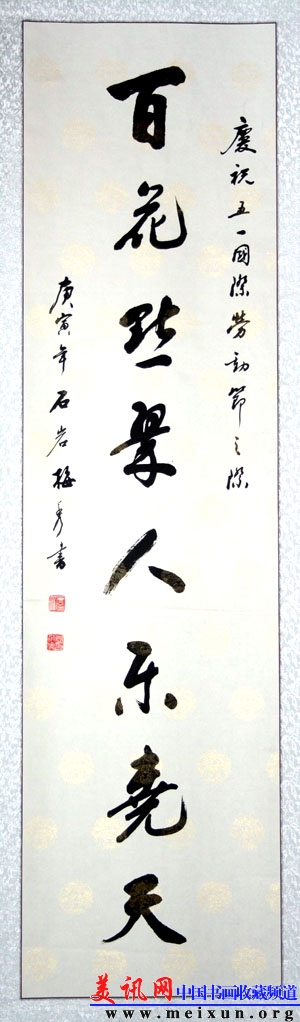 慶祝五一國際勞動節之際
百花點翠人乐堯天
庚寅年石岩梅秀書
美讯网 中国书画收藏频道
www.meixun.org